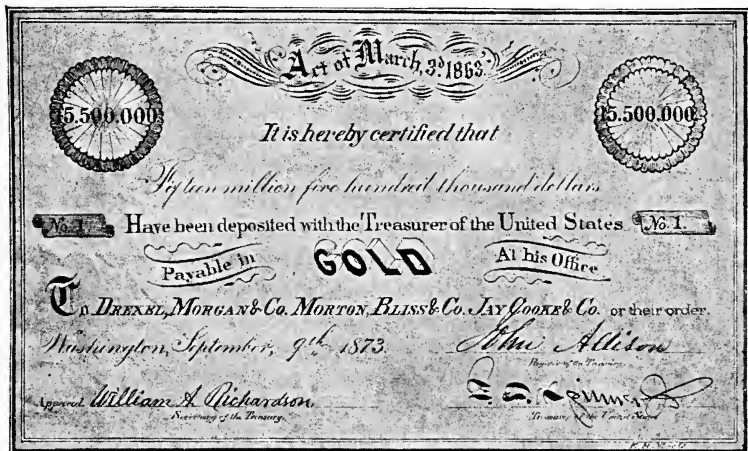 Act of March, 3ᵈ 1863.
15.500.000. 15.500.000.
It is hereby certified that
Fifteen million five hundred thousand dollars
No. 1. Have been deposited with the Treasurer of the United States No. 1.
Payable in GOLD At his Office
To DREXEL, MORGAN & Co. MORTON, BLISS & Co. JAY COOKE & Co. or their order.
Washington, September, 9th 1873. John Allison
Register of the Treasury.
Approved William A Richardson
Secretary of the Treasury. Treasurer of the United States